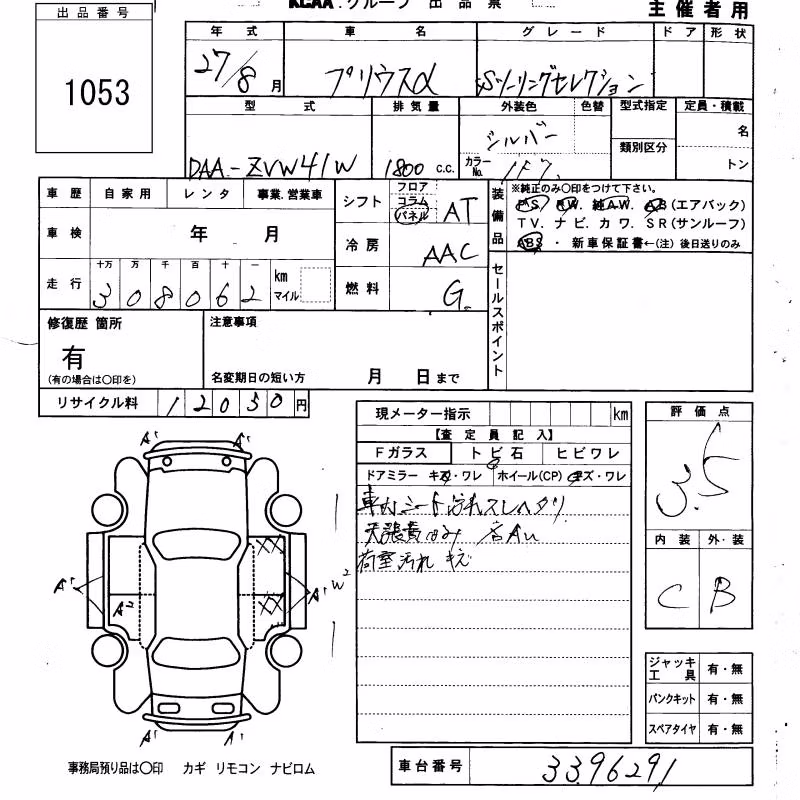 KCAA. グループ 出 品 票
主催者用
出品番号
1053
年式 車名 グレード ドア 形状
27/8月 プリウスα Sツーリングセレクション
型式 排気量 外装色 色替 型式指定 定員・積載
DAA-ZVW41W 1800 c.c. シルバー カラーNo. 1F7 類別区分 名 トン
車歴 自家用 レンタ 事業.営業車
車検 年 月
走行 十万 万 千 百 十 一
308062 km マイル
シフト フロア コラム パネル AT
冷房 AAC
燃料 G.
装備品
※純正のみ〇印をつけて下さい。
PS. PW. 純AW. AB(エアバック)
TV. ナビ. カワ. SR(サンルーフ)
ABS ・ 新車保証書←(注) 後日送りのみ
セールスポイント
修復歴 箇所
有
(有の場合は〇印を)
注意事項
名変期日の短い方 月 日まで
リサイクル料 12050円
現メーター指示 km
【査定員記入】
Fガラス トビ石 ヒビワレ
ドアミラー キズ・ワレ ホイール(CP) キズ・ワレ
車内シート汚れスレヘタリ
荷室汚れ キズ
評価点
3.5
内装 外・装
C B
A1 A1
XX
A1 A2 XX A1,W2
A1 A1
ジャッキ工具 有・無
パンクキット 有・無
スペアタイヤ 有・無
事務局預り品は〇印 カギ リモコン ナビロム
車台番号 3396291